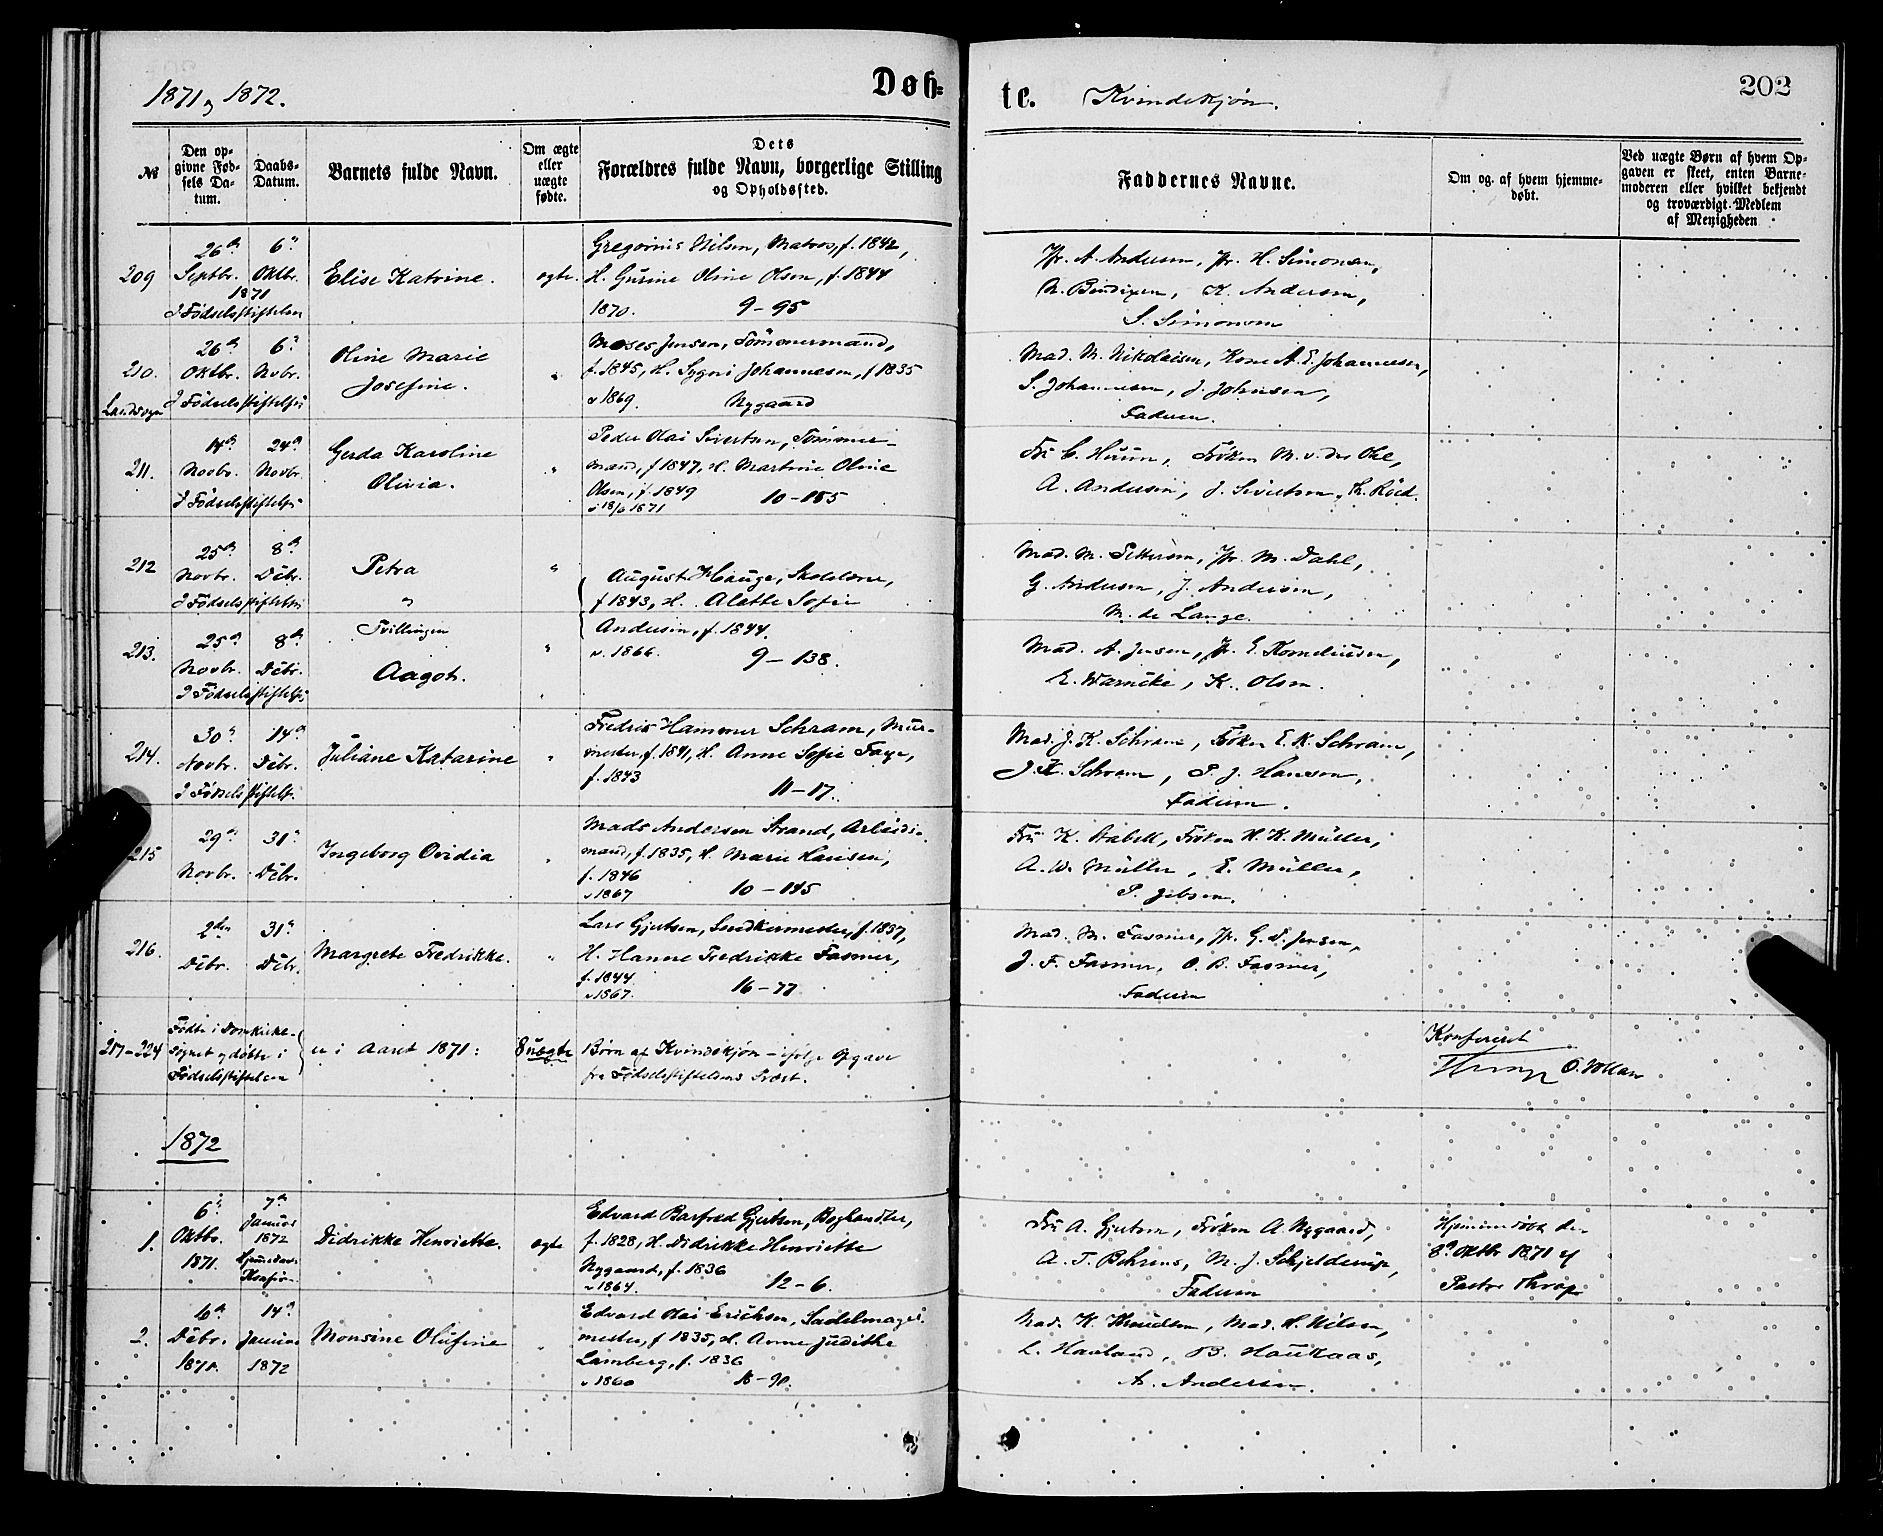 1871 og 1872.
Døb-
te.
Kvindekjøn.
202
№
Den op-
givne Fød-
sels Da-
tum.
Daabs-
Datum.
Barnets fulde Navn.
Om ægte
eller
uægte
fødte.
Dets
Forældres fulde Navn, borgerlige Stilling
og Opholdssted.
Faddernes Navne.
Om og. af hvem hjemme-
døbt.
Ved uægte Børn af hvem Op-
gaven er skeet, enten Barne-
moderen eller hvilket bekjendt
og troværdigt Medlem
af Menigheden
209
26de Septbr.
6te Oktbr.
1871
I Fødselsstiftelsen
Elise Katrine.
ægte.
Gregorius Nilsen, Matros, f. 1842,
H. Gurine Oline Olsen, f. 1844
1870. 9-95
Jfr. A. Andersen, Jfr. H. Simonsen,
N. Bendixen, K. Andersen,
S. Simonsen
210.
Landsogn
26de Oktbr.
6te Novbr.
I Fødselsstiftelsen
Oline Marie
Josefine.
"
Moses Jensen, Tømmermand,
f. 1845, H. Sygni Johannesen, f 1835
v 1869. Nygaard
Mad. M. Nikolaisen, Kone A. E. Johannesen,
S. Johannesen, J. Johnsen,
Faderen.
211.
14de Novbr.
24de Novbr.
I Fødselsstiftelsen
Gerda Karoline
Olivia.
"
Peder Olai Sivertsen, Tømmer-
mand, f 1847, H. Martine Oline
Olsen, f. 1849 10-185
v 18/6 1871
Fru C. Heuun, Frøken M. v. der Ohe,
A. Andersen, J. Sivertsen, K. Röed.
212
25de Novbr.
8de Dcbr.
I Fødselsstiftelsen
Petra
"
"
August Hauge, Skolelærer,
f 1843, H. Alette Sofie
Andersen, f. 1844.
v. 1866. 9-138.
Mad. M. Pettersen, Jfr. M. Dahl,
G. Andersen, J. Andersen,
M. de Lange.
213.
25de Novbr.
8de Dcbr.
I Fødselsstiftelsen
Tvillinger
Aagot.
"
Mad. A. Jensen, Jfr. E. Korneliusen,
E. Warncke, K. Olsen.
214.
30te Novbr.
14de Dcbr.
I Fødselsstiftels.
Juliane Katarine
"
Fredrik Hammer Schram, Mur-
mester, f. 1841, H. Anne Sofie Faye,
f. 1843 11-17.
Mad. J. K. Schram, Frøken E. K. Schram,
J. K. Schram, P. J. Hansen,
Faderen.
215
29de Novbr.
31te Dcbr.
Ingeborg Ovidia
"
Mads Andersen Strand, Arbeids-
mand, f. 1835, H. Marie Hansen,
f. 1846
v 1867 10-145
Fru K. Stabell, Frøken H. K. Müller,
A. W. Müller, E. Müller,
P. Jebsen.
216.
2den Dcbr.
31te Dcbr.
Margrete Fredrikke.
"
Lars Gjertsen, Snedkermester, f. 1837,
H. Hanne Fredrikke Fasmer,
f. 1844.
v 1867. 16-77
Mad. M. Fasmer, Jfr. G. D. Jensen,
J. F. Fasmer, O. B. Fasmer,
Faderen
217-224
Fødte i Domkirke-
sognet og døbte i
Fødselsstiftelsen
er i Aaret 1871:
8 uægte
Børn af Kvindekjøn - ifølge Opgave
fra Fødselsstiftelsens Præst.
Konfereret
O. Vollan
1872
1.
6te Oktbr. 1871.
7de Januar 1872
Didrikke Henriette.
ægte
Edvard Barfred Gjertsen, Boghandler,
f. 1828, H. Didrikke Henriette
Nygaard, f. 1836
v 1864. 12-6.
Fru A. Gjertsen, Frøken A. Nygaard,
A. T. Behrens, M. J. Schjelderup,
Faderen
Hjemmedøbt de-
8de Oktbr 1871 af
Pastor Thrap
2.
6te Dcbr. 1871.
14de Januar 1872
Monsine Olufine
"
Edvard Olai Erichsen, Sadelmager-
mester, f 1835, H. Anne Judithe
Lamberg, f. 1836
v 1860 18-90.
Mad. K. Knudsen, Mad. H. Nilsen,
L. Haaland, B. Haukaas,
A. Andersen.